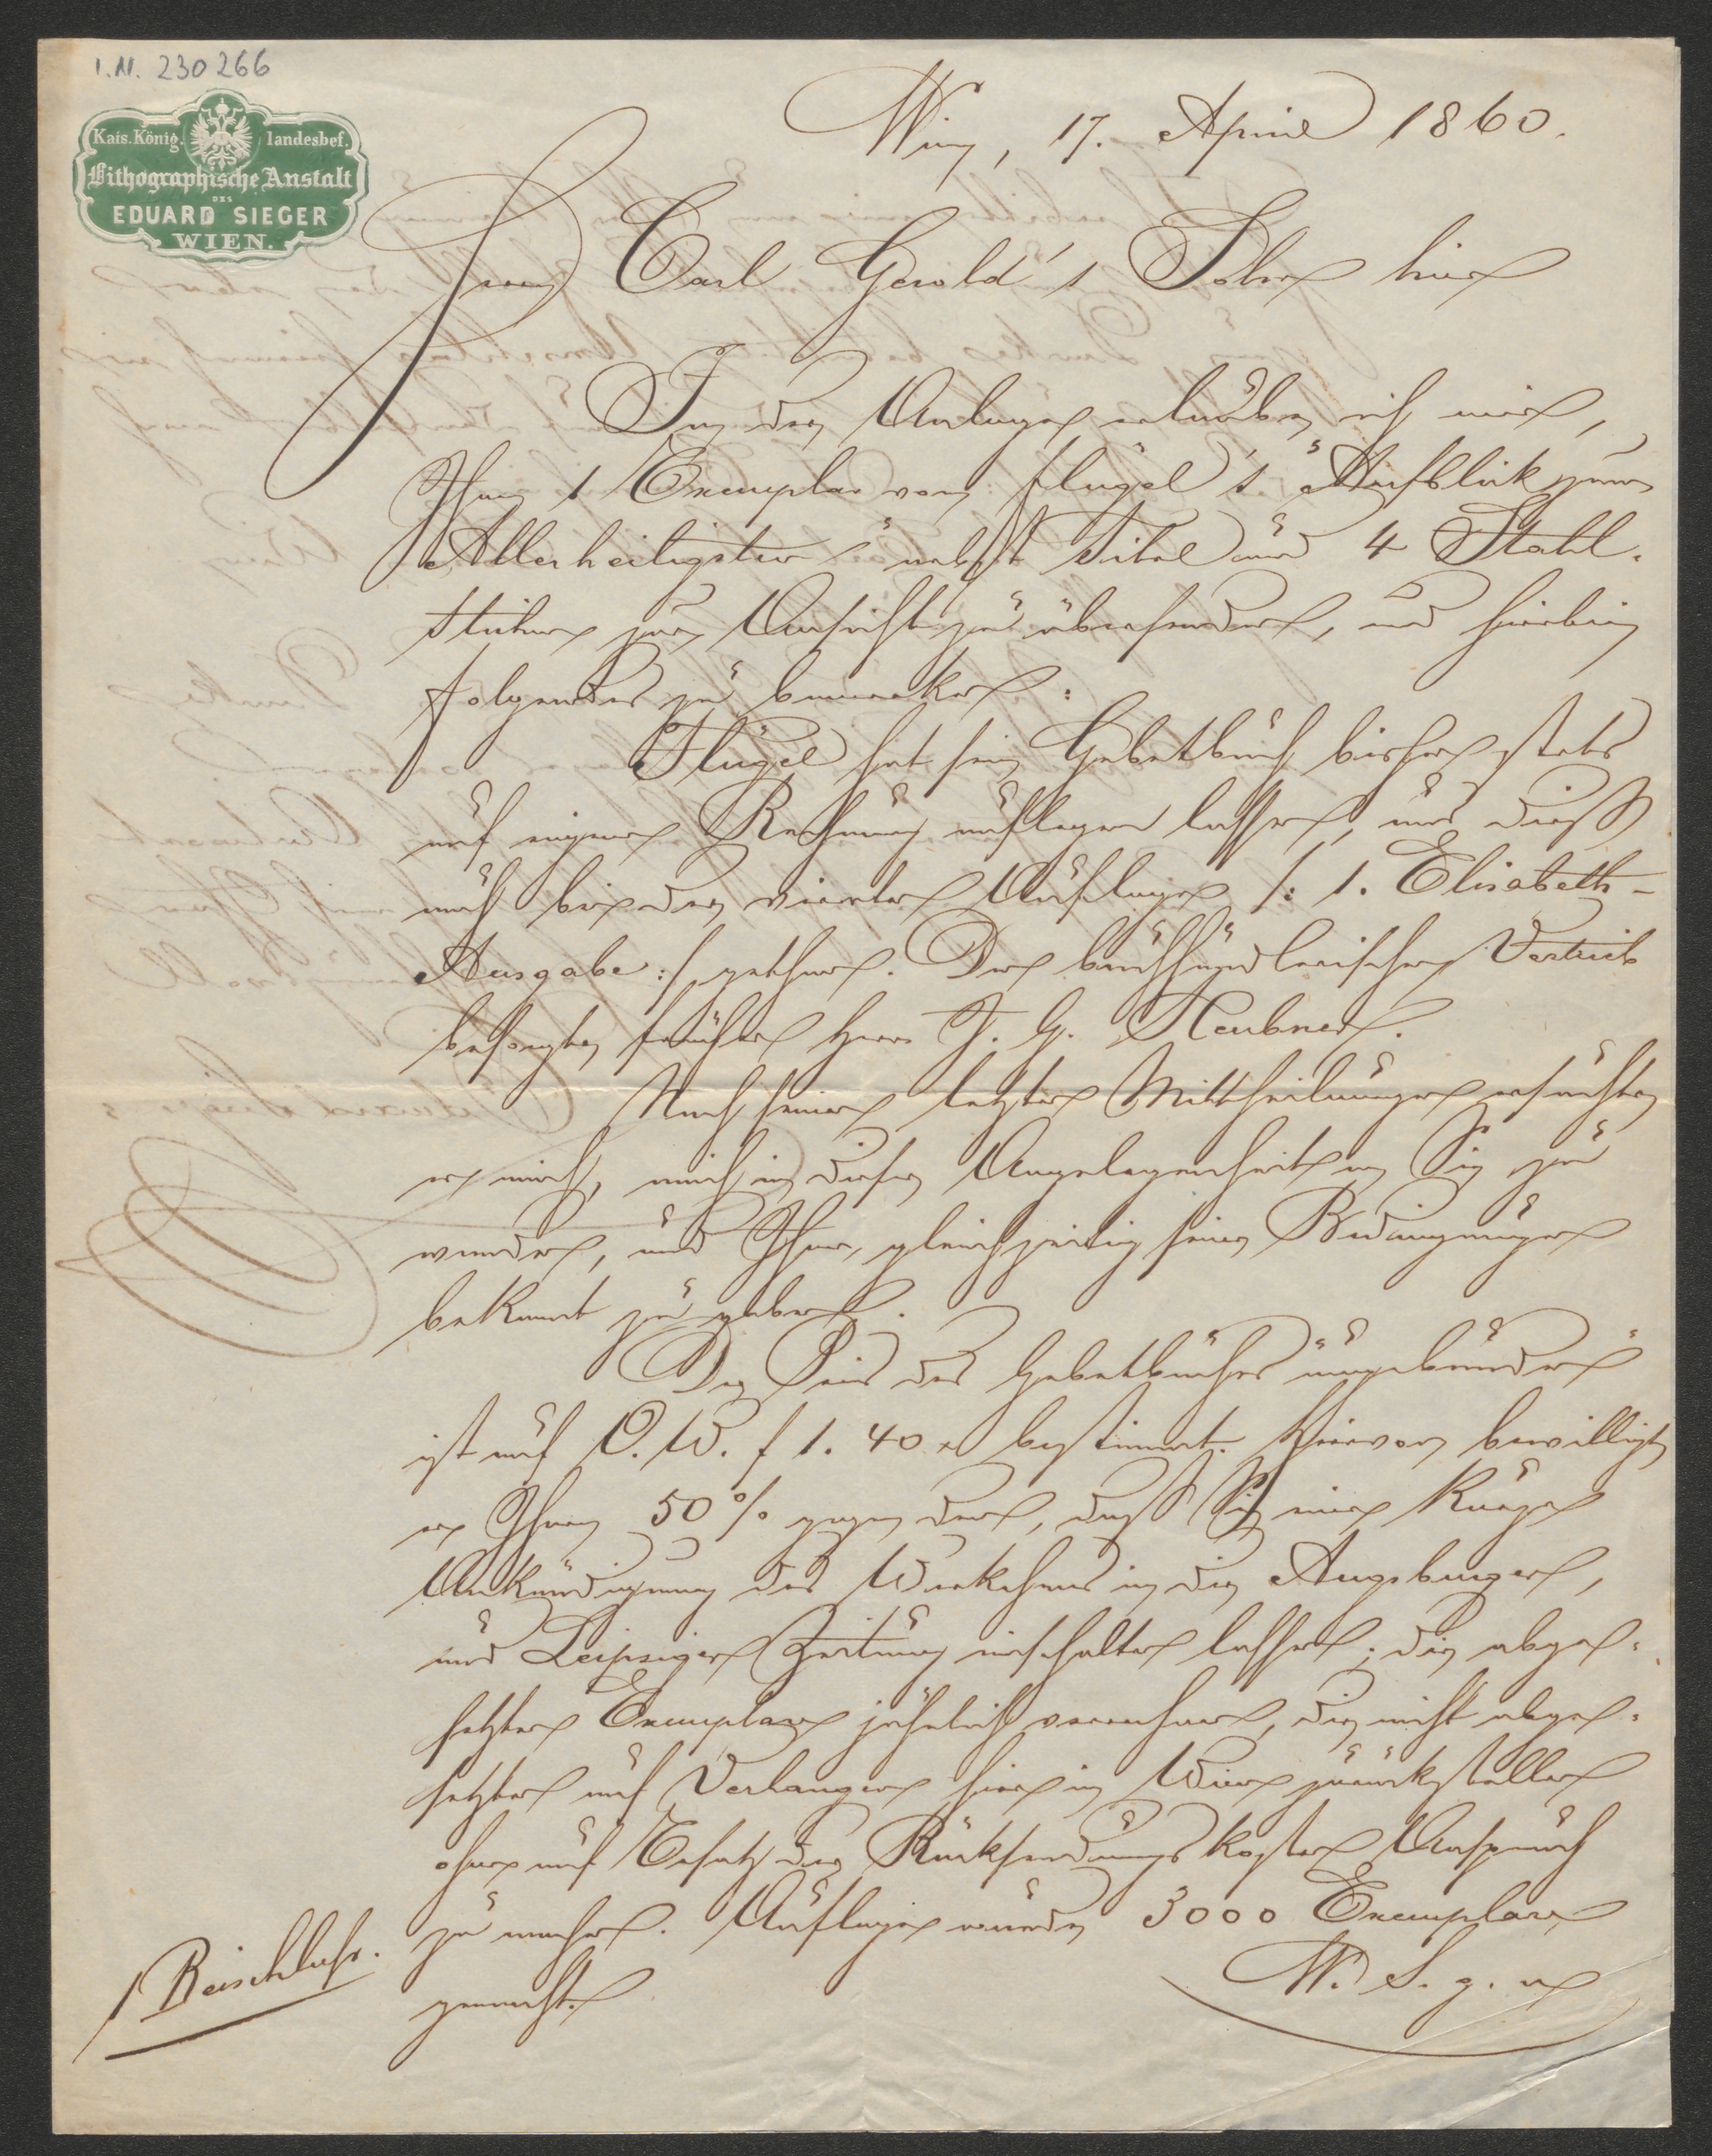 I.N. 230266
Kais. König. landesbef.
Lithographische Anstalt
DES
EDUARD SIEGER
WIEN.
Wien, 17. April 1860.
Herrn Carl Gerold's Sohn hier
In der Anlage erlaube ich mir,
Ihnen 1 Exemplar von Flügel's "Aufblick zum
Allerheiligsten" nebst Titel und 4 Stahl-
stichen zur Ansicht zu übersenden, und hierbei
folgendes zu bemerken:
Flügel hat sein Gebetbuch bisher stets
auf eigene Rechnung auflegen lassen, und dieß
auch bei der vierten Auflage /: 1. Elisabeth-
Ausgabe :/ gethan. Den buchhändlerischen Vertrieb
besorgte früher Herr J. G. Heubner.
Nach seinen letzten Mittheilungen ersuchte
er mich, mich in dieser Angelegenheit an Sie zu
wenden, und Ihnen gleichzeitig seine Bedingungen
bekannt zu geben.
Der Preis des Gebetbuches ungebunden
ist auf O.W. f 1. 40 x bestimmt. Hievon bewilligt
er Ihnen 50 % gegen dem, daß Sie eine kurze
Ankündigung des Werkchens in die Augsburger,
und Leipziger Zeitung einschalten lassen; die abge-
setzten Exemplare jährlich verrechnen, die nicht abge-
setzten auf Verlangen hier in Wien zurückstellen
ohne auf Ersatz der Rücksendungskosten Anspruch
zu machen. Auflage wurde 3000 Exemplare
gemacht.
W. S. g. u
1 Beischluss.